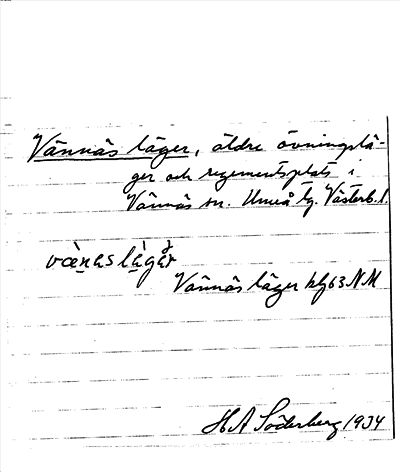 Vännäs läger, äldre övningslä-
ger och regementsplats i
Vännäs sn. Umeå tg. Västerb. l.
væ̀nas lä̀gər
Vännäs läger blg 63 NM
H A Söderberg 1934